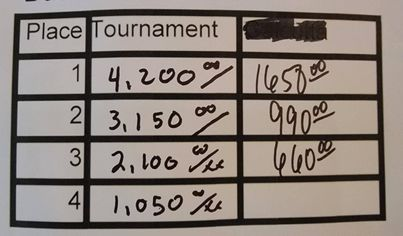 Place Tournament
1 4,200 00/ 1650 00
2 3,150 00/ 990 00
3 2,100 00/xx 660 00
4 1,050 00/xx